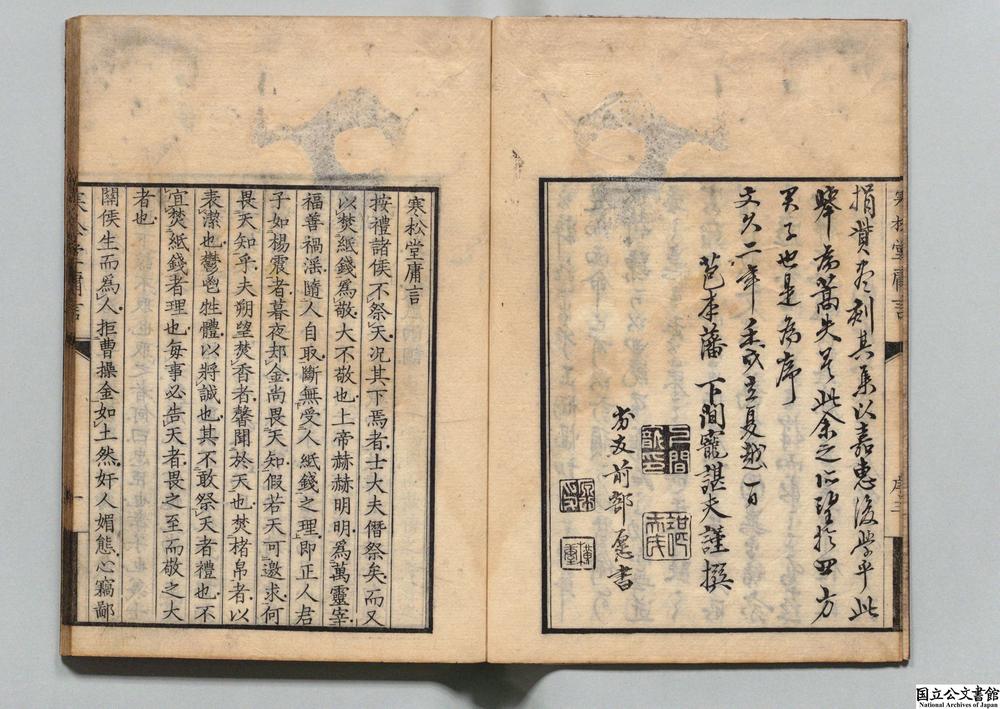 捐貲 刻其集以嘉惠後學乎此
擧 爲蒿矢是此余之所望於四方
君子也是爲序
文久二年壬戌立夏越一日
芭本藩 下間寵諶夫謹撰
友前部 書
寒松堂庸言
序三
寒松堂庸言
按禮諸侯不祭天況其下焉者士大夫僭祭矣而又
以焚紙錢爲敬大不敬也上帝赫赫明明爲萬靈宰
福善禍淫隨人自取斷無受人紙錢之理即正人君
子如楊震者暮夜却金尚畏天知假若天可邀求何
畏天知乎夫朔望焚香者馨聞於天也焚楮帛者以
表潔也鬱鬯牲醴以將誠也其不敢祭天者禮也不
宜焚紙錢者理也每事必告天者畏之至而敬之大
者也
關侯生而爲人拒曹操金如土然奸人媚態心竊鄙
寒松堂庸言
一
国立公文書館
National Archives of Japan